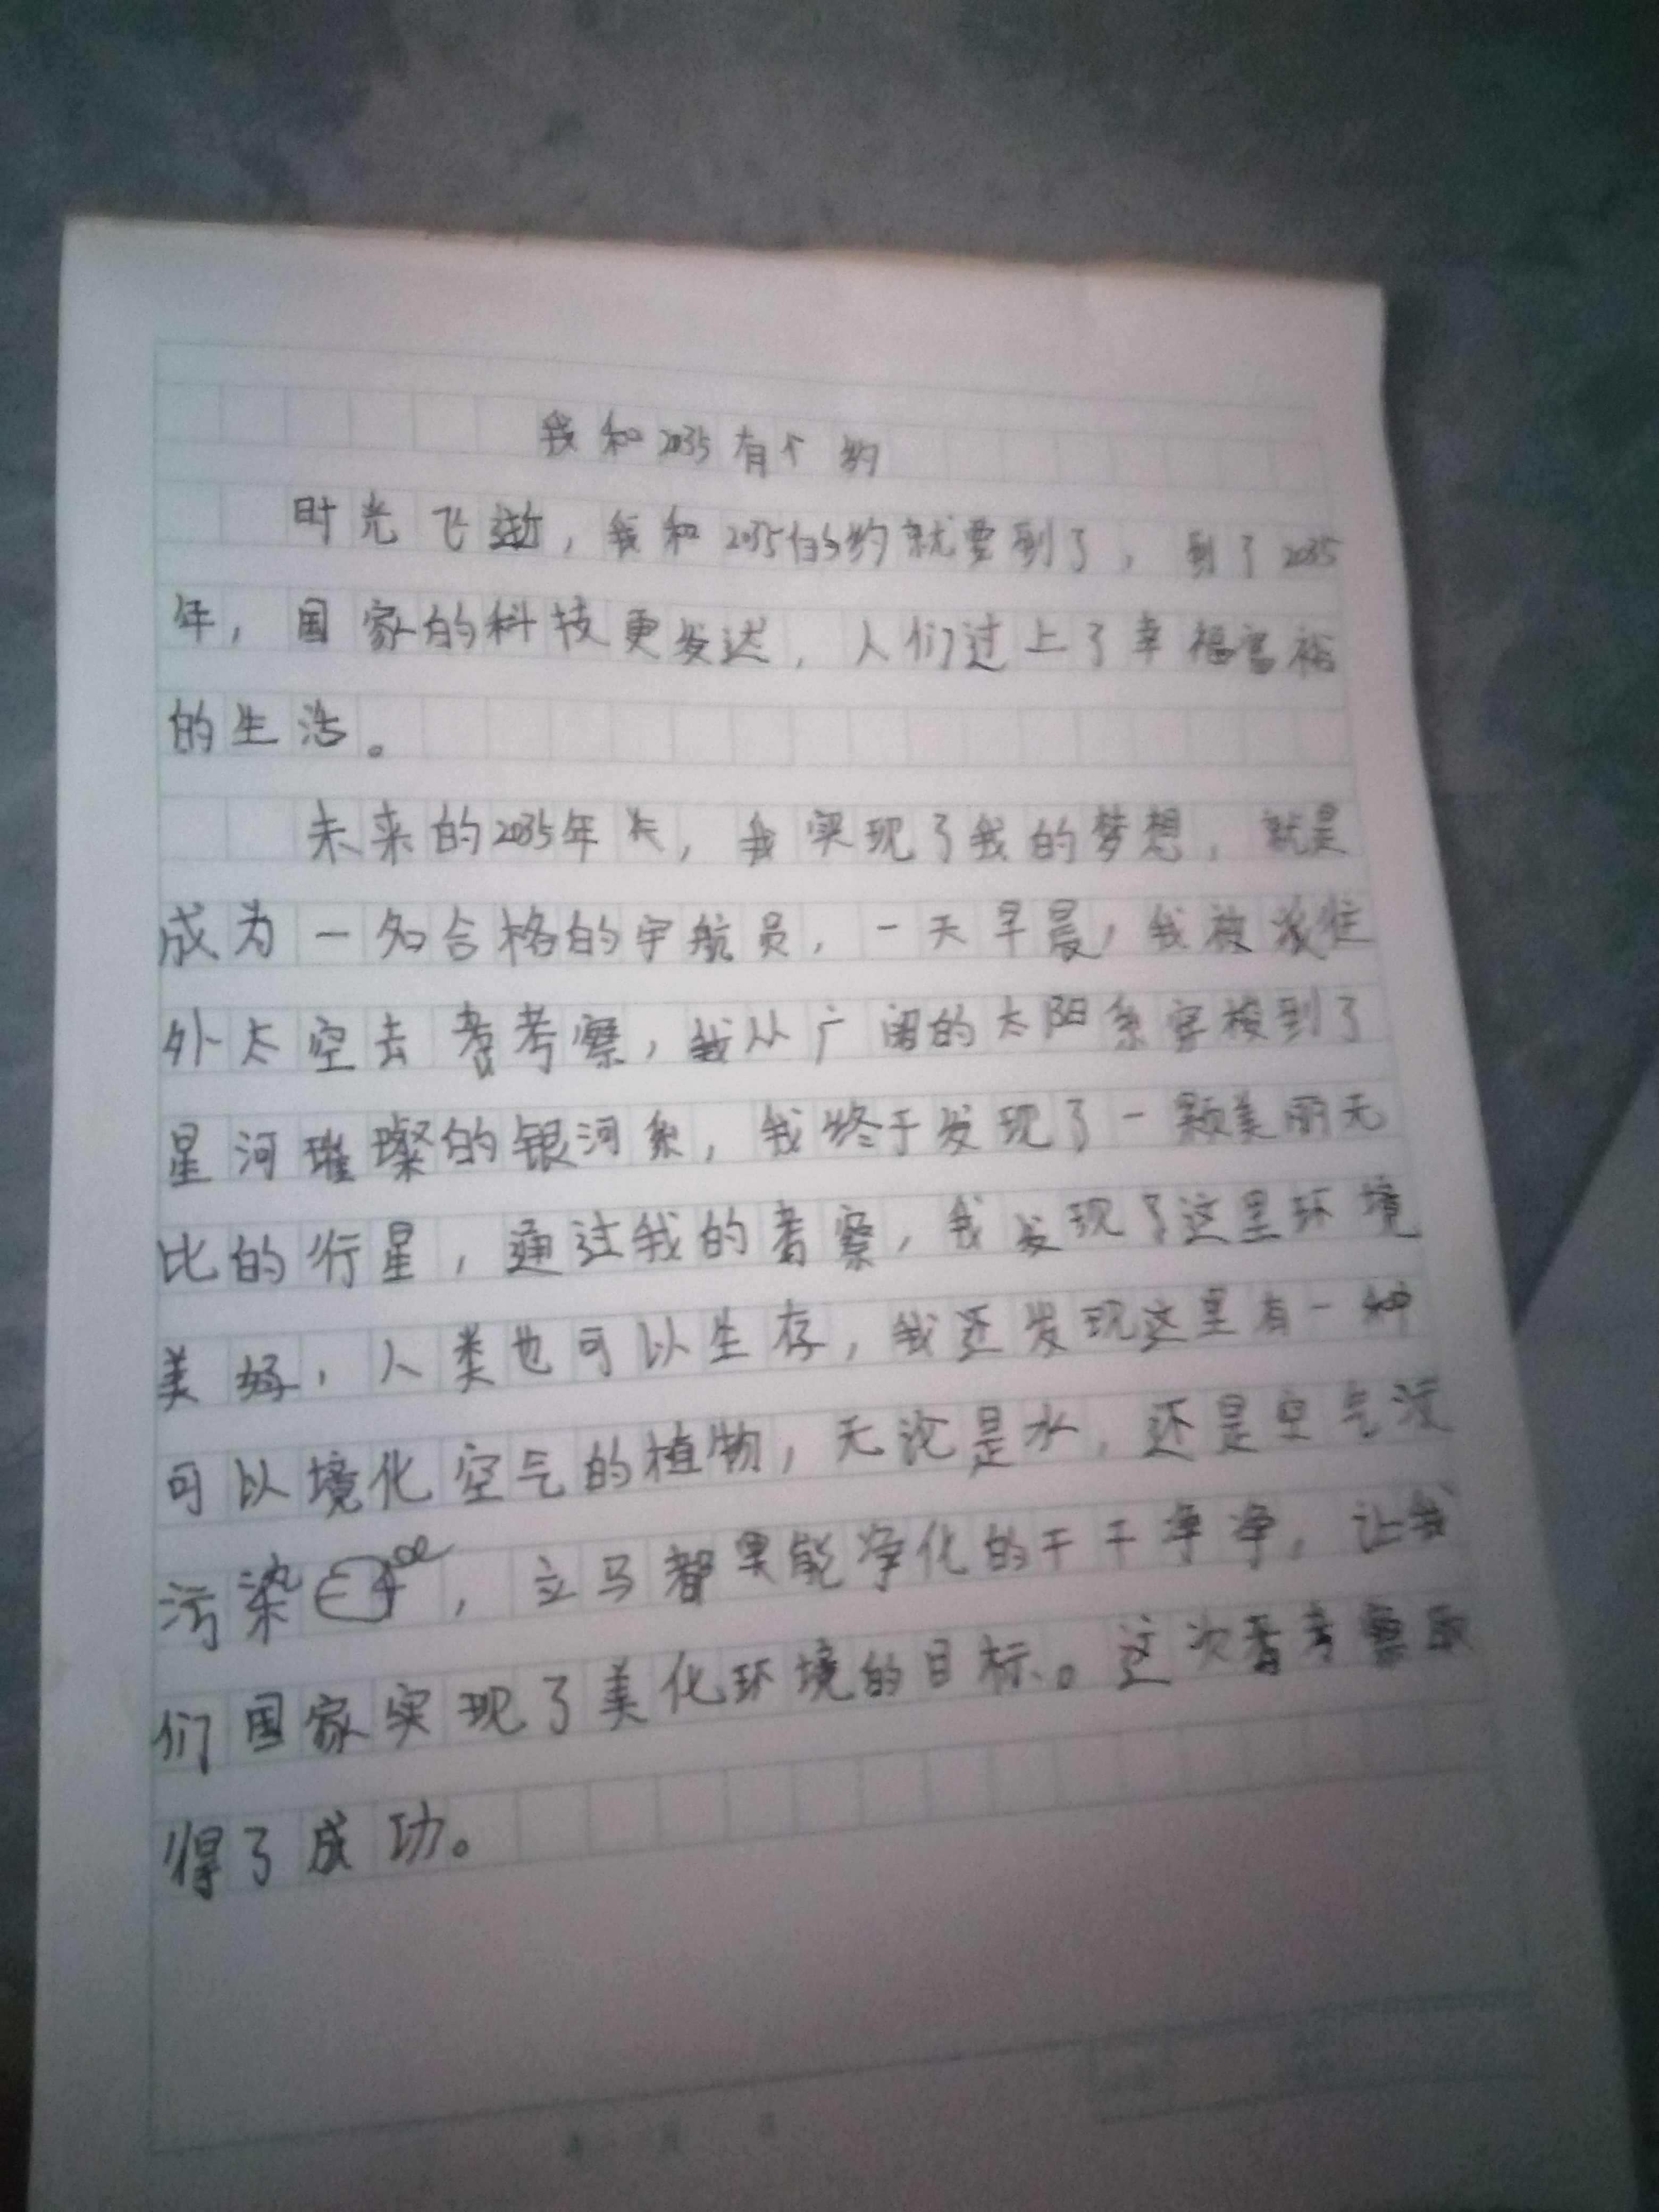 我和2035有个约
时光飞逝，我和2035的约就要到了，到了2035
年，国家的科技更发达，人们过上了幸福富裕
的生活。
未来的2035年，我实现了我的梦想，就是
成为一名合格的宇航员，一天早晨，我被派往
外太空去考察，我从广阔的太阳系穿梭到了
星河璀璨的银河系，我终于发现了一颗美丽无
比的行星，通过我的考察，我发现了这里环境
美好，人类也可以生存，我还发现这里有一种
可以境化空气的植物，无论是水，还是空气
污染，立马都能净化的干干净净，让我
们国家实现了美化环境的目标。这次考察取
得了成功。